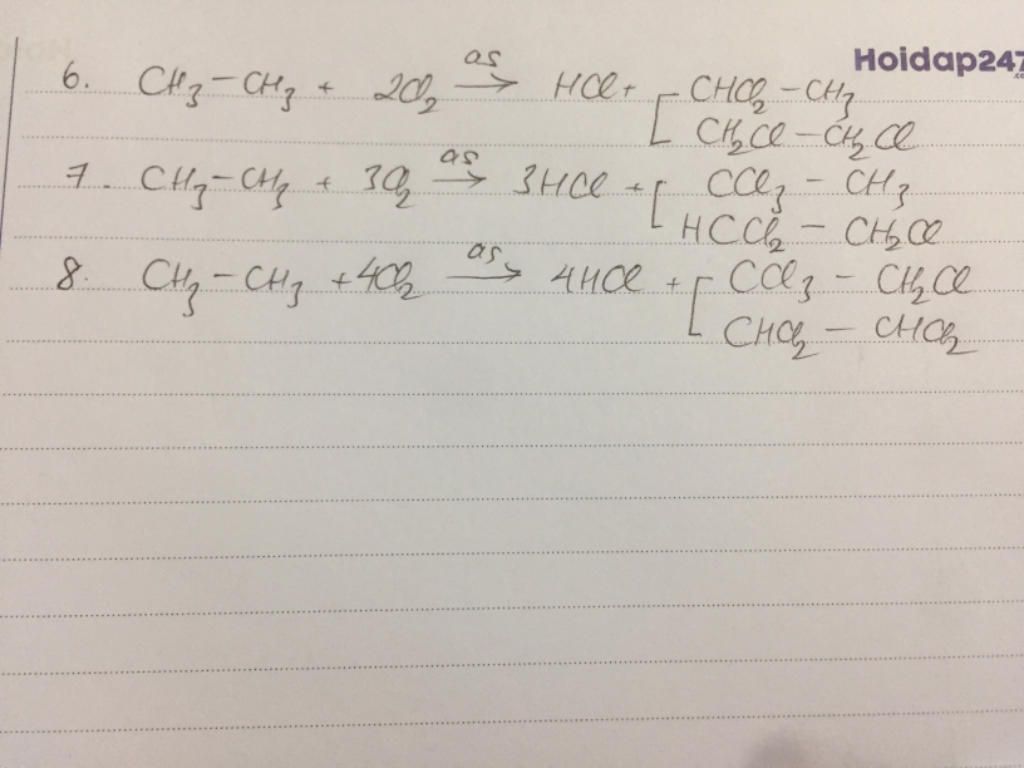 Hoidap247
.com
6. CH3-CH3 + 2Cl2 as→ HCl + [ CHCl2-CH3
CH2Cl-CH2Cl
7. CH3-CH3 + 3Cl2 as→ 3HCl + [ CCl3 - CH3
HCCl2 - CH2Cl
8. CH3-CH3 +4Cl2 as→ 4HCl + [ CCl3 - CH2Cl
CHCl2 - CHCl2